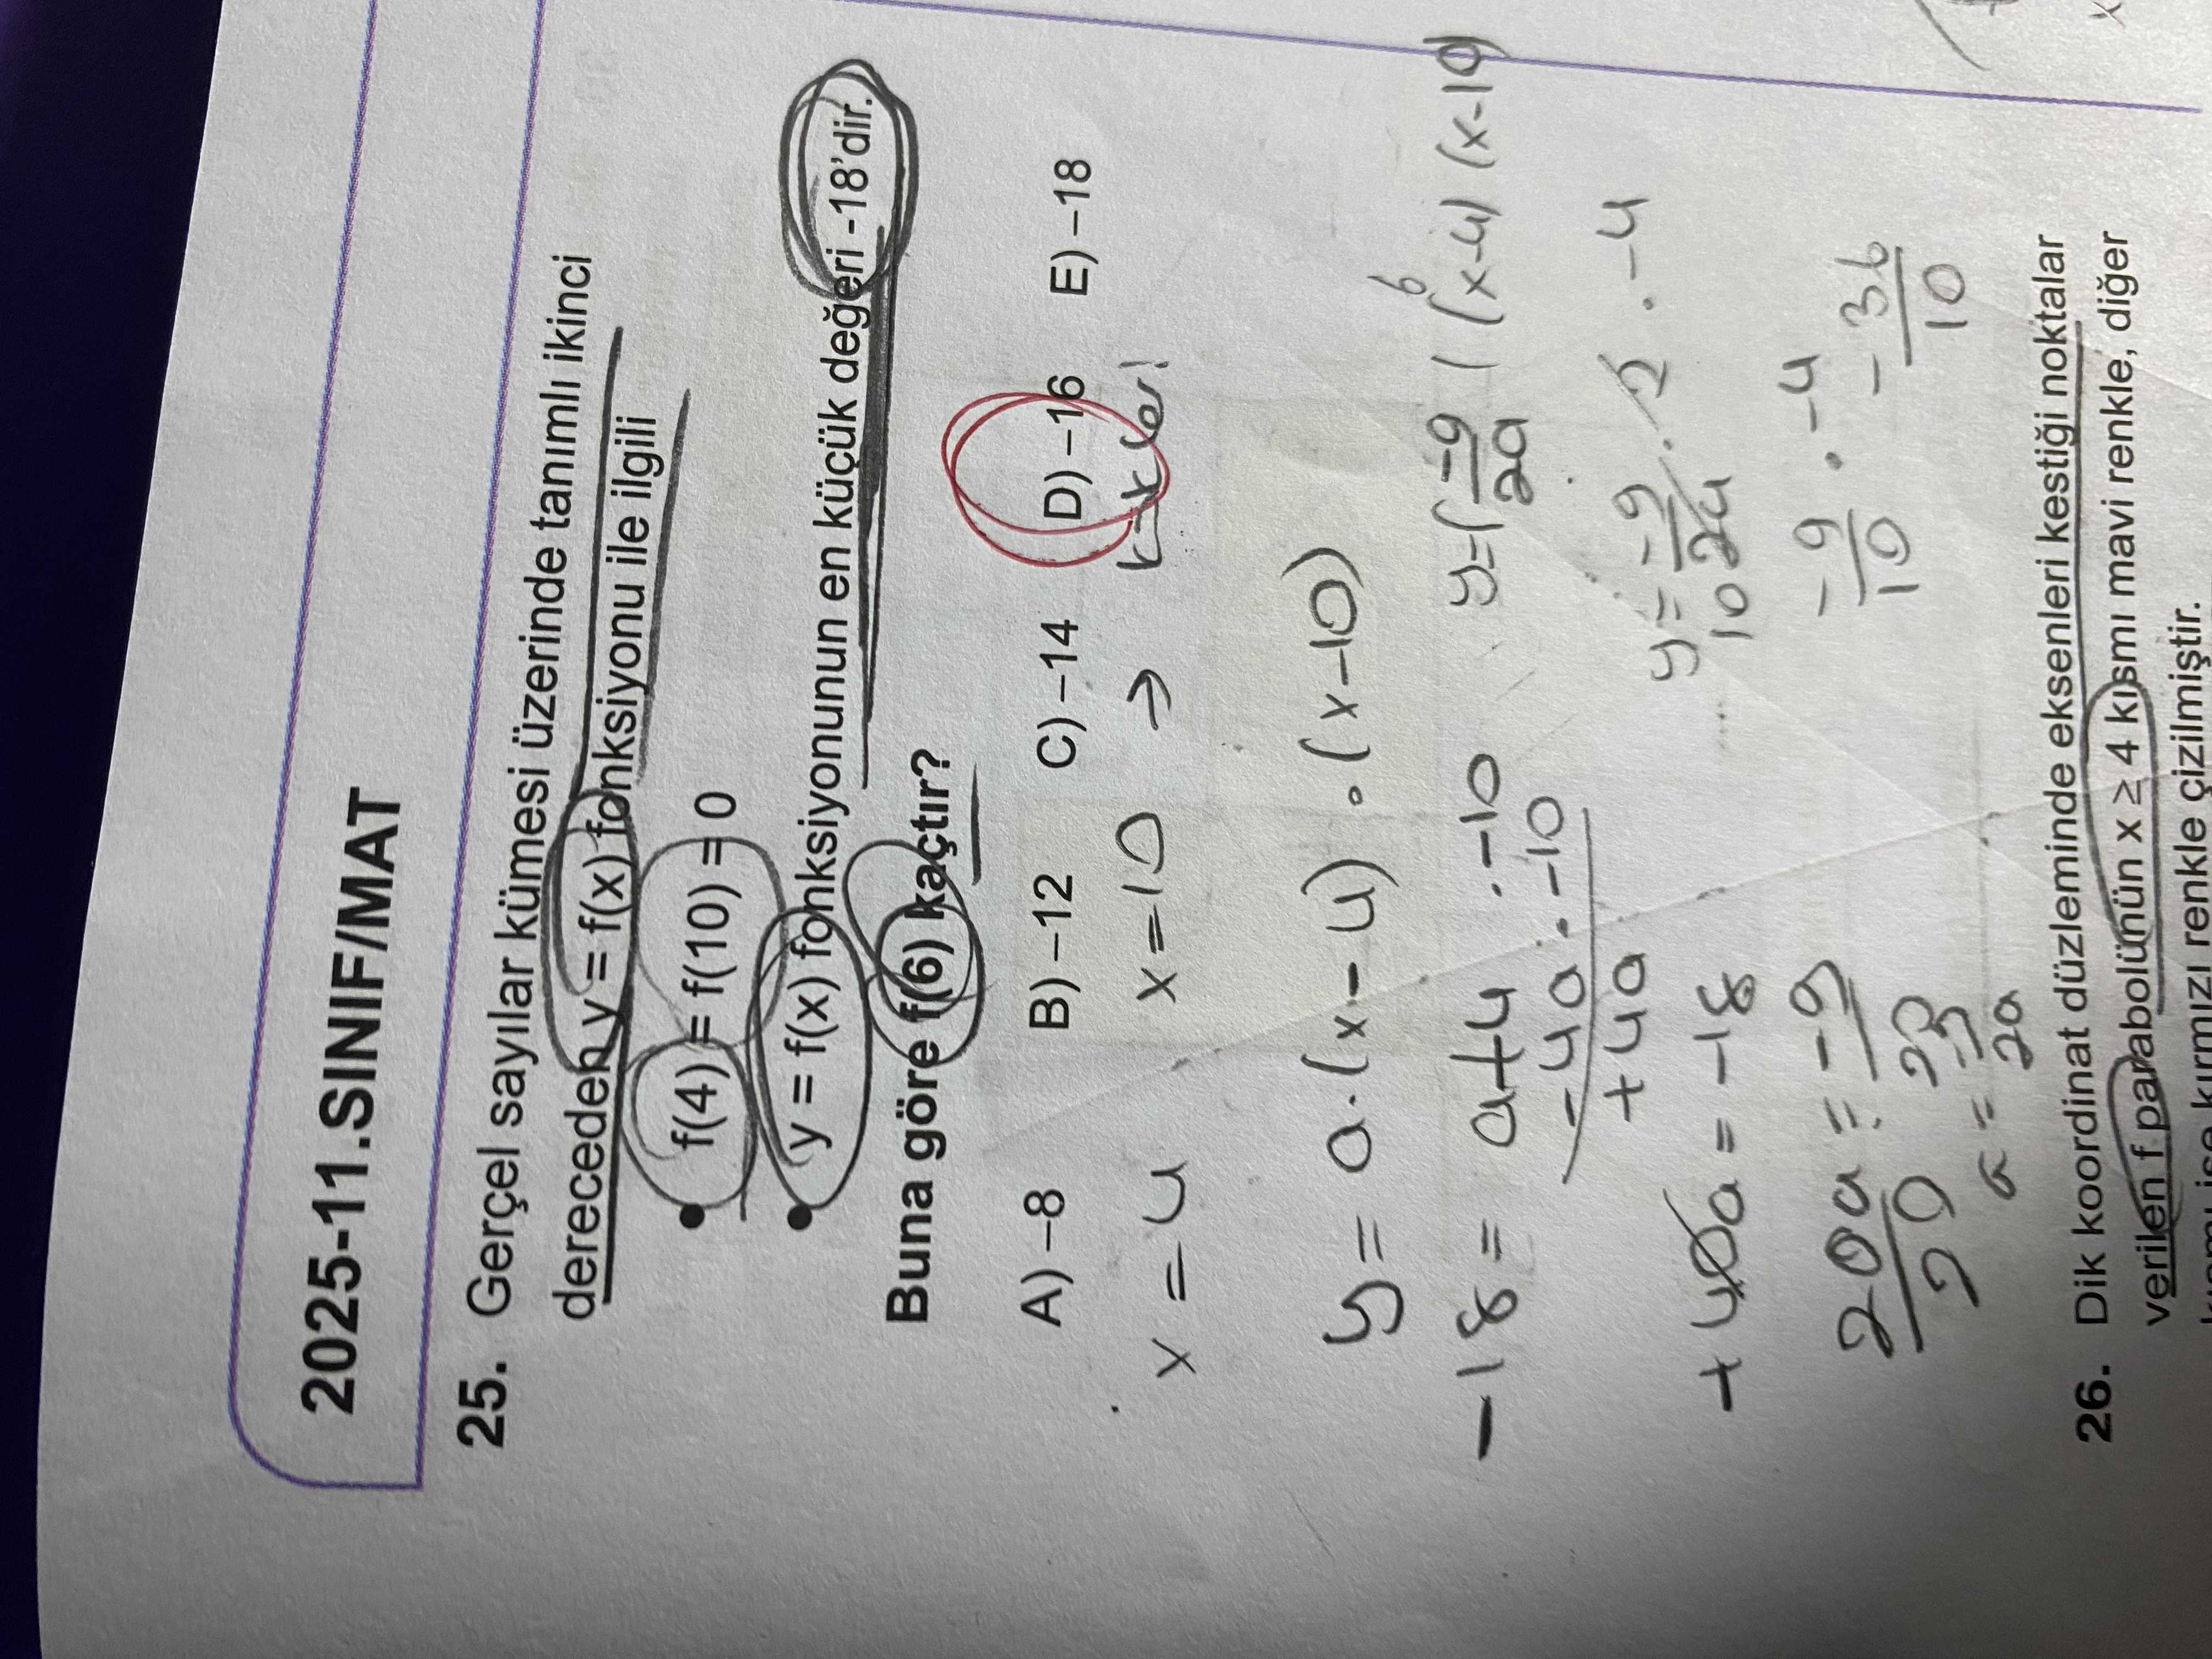 2025-11.SINIF/MAT
25. Gerçel sayılar kümesi üzerinde tanımlı ikinci
dereceden y = f(x) fonksiyonu ile ilgili
• f(4) = f(10) = 0
• y = f(x) fonksiyonunun en küçük değeri -18'dir.
Buna göre f(6) kaçtır?
A) –8 B) –12 C) –14 D) –16 E) –18
x = 4 x = 10 →
y = a.(x-4).(x-10)
-18 = a+4 .-10
-4a.-10
+40
+40a = -18
20a = -9
20 20
a = -9
20
y=(-9/20) (x-4) (x-10)
6
y = -9/20 . 2 . -4
10
-9/10 . -4
-36/10
26. Dik koordinat düzleminde eksenleri kestiği noktalar
verilen f parabolünün x ≥ 4 kısmı mavi renkle, diğer
kısmı ise kırmızı renkle çizilmiştir.